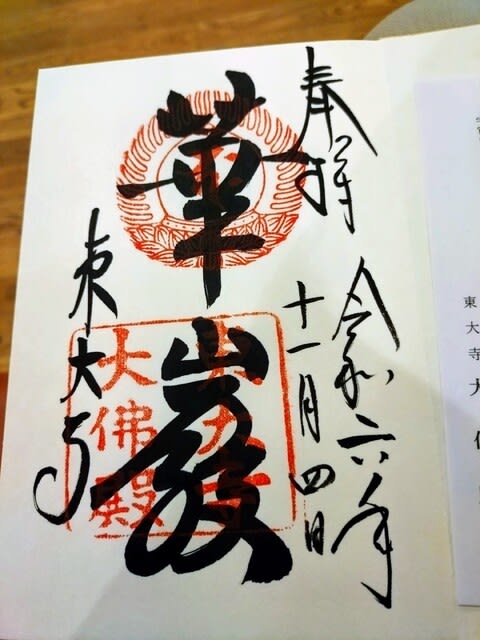 奉拝
令和六年
十一月四日
華厳
東大寺
東大寺
大佛殿
東大寺大